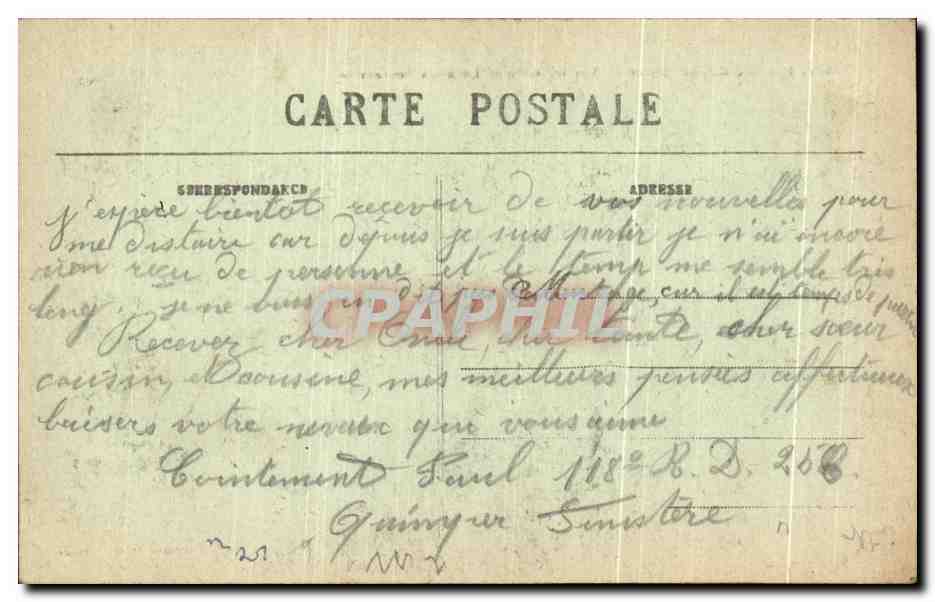 CARTE POSTALE
CORRESPONDANCE
ADRESSE
J'espère bientot recevoir de vos nouvelles pour
me distaire car depuis je suis partir je n'ai encore
rien reçu de personne et le temp me semble très
long. je ne vous en dit pas d'avantage, car il est temps de
Recever cher Oncle, cher tante, cher sœur
cousin, et cousine, mes meilleurs pensées affectueux
baisers votre neveux qui vous aime
Cointement Paul 118e R. D. 25e
Quimper Finistère
CPAPHIL